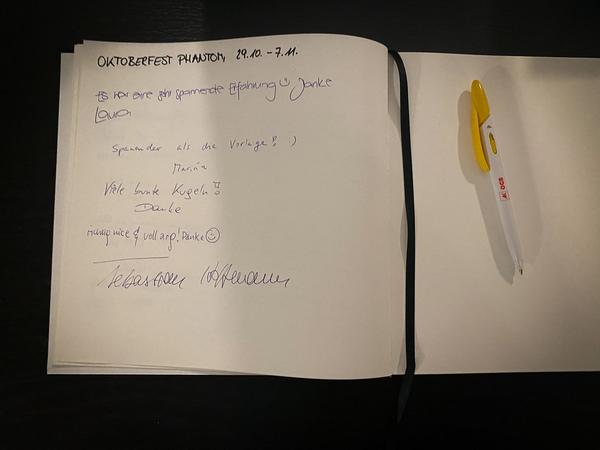 OKTOBERFEST PHANTOM 29.10. - 7.11.
Es war eine sehr spannende Erfahrung ☺ Danke
Laura
Spannender als die Vorlage! :)
Marina
Viele bunte Kugeln!!
Danke
nice & voll arg! Danke ☺
Sebastian
ÖGB